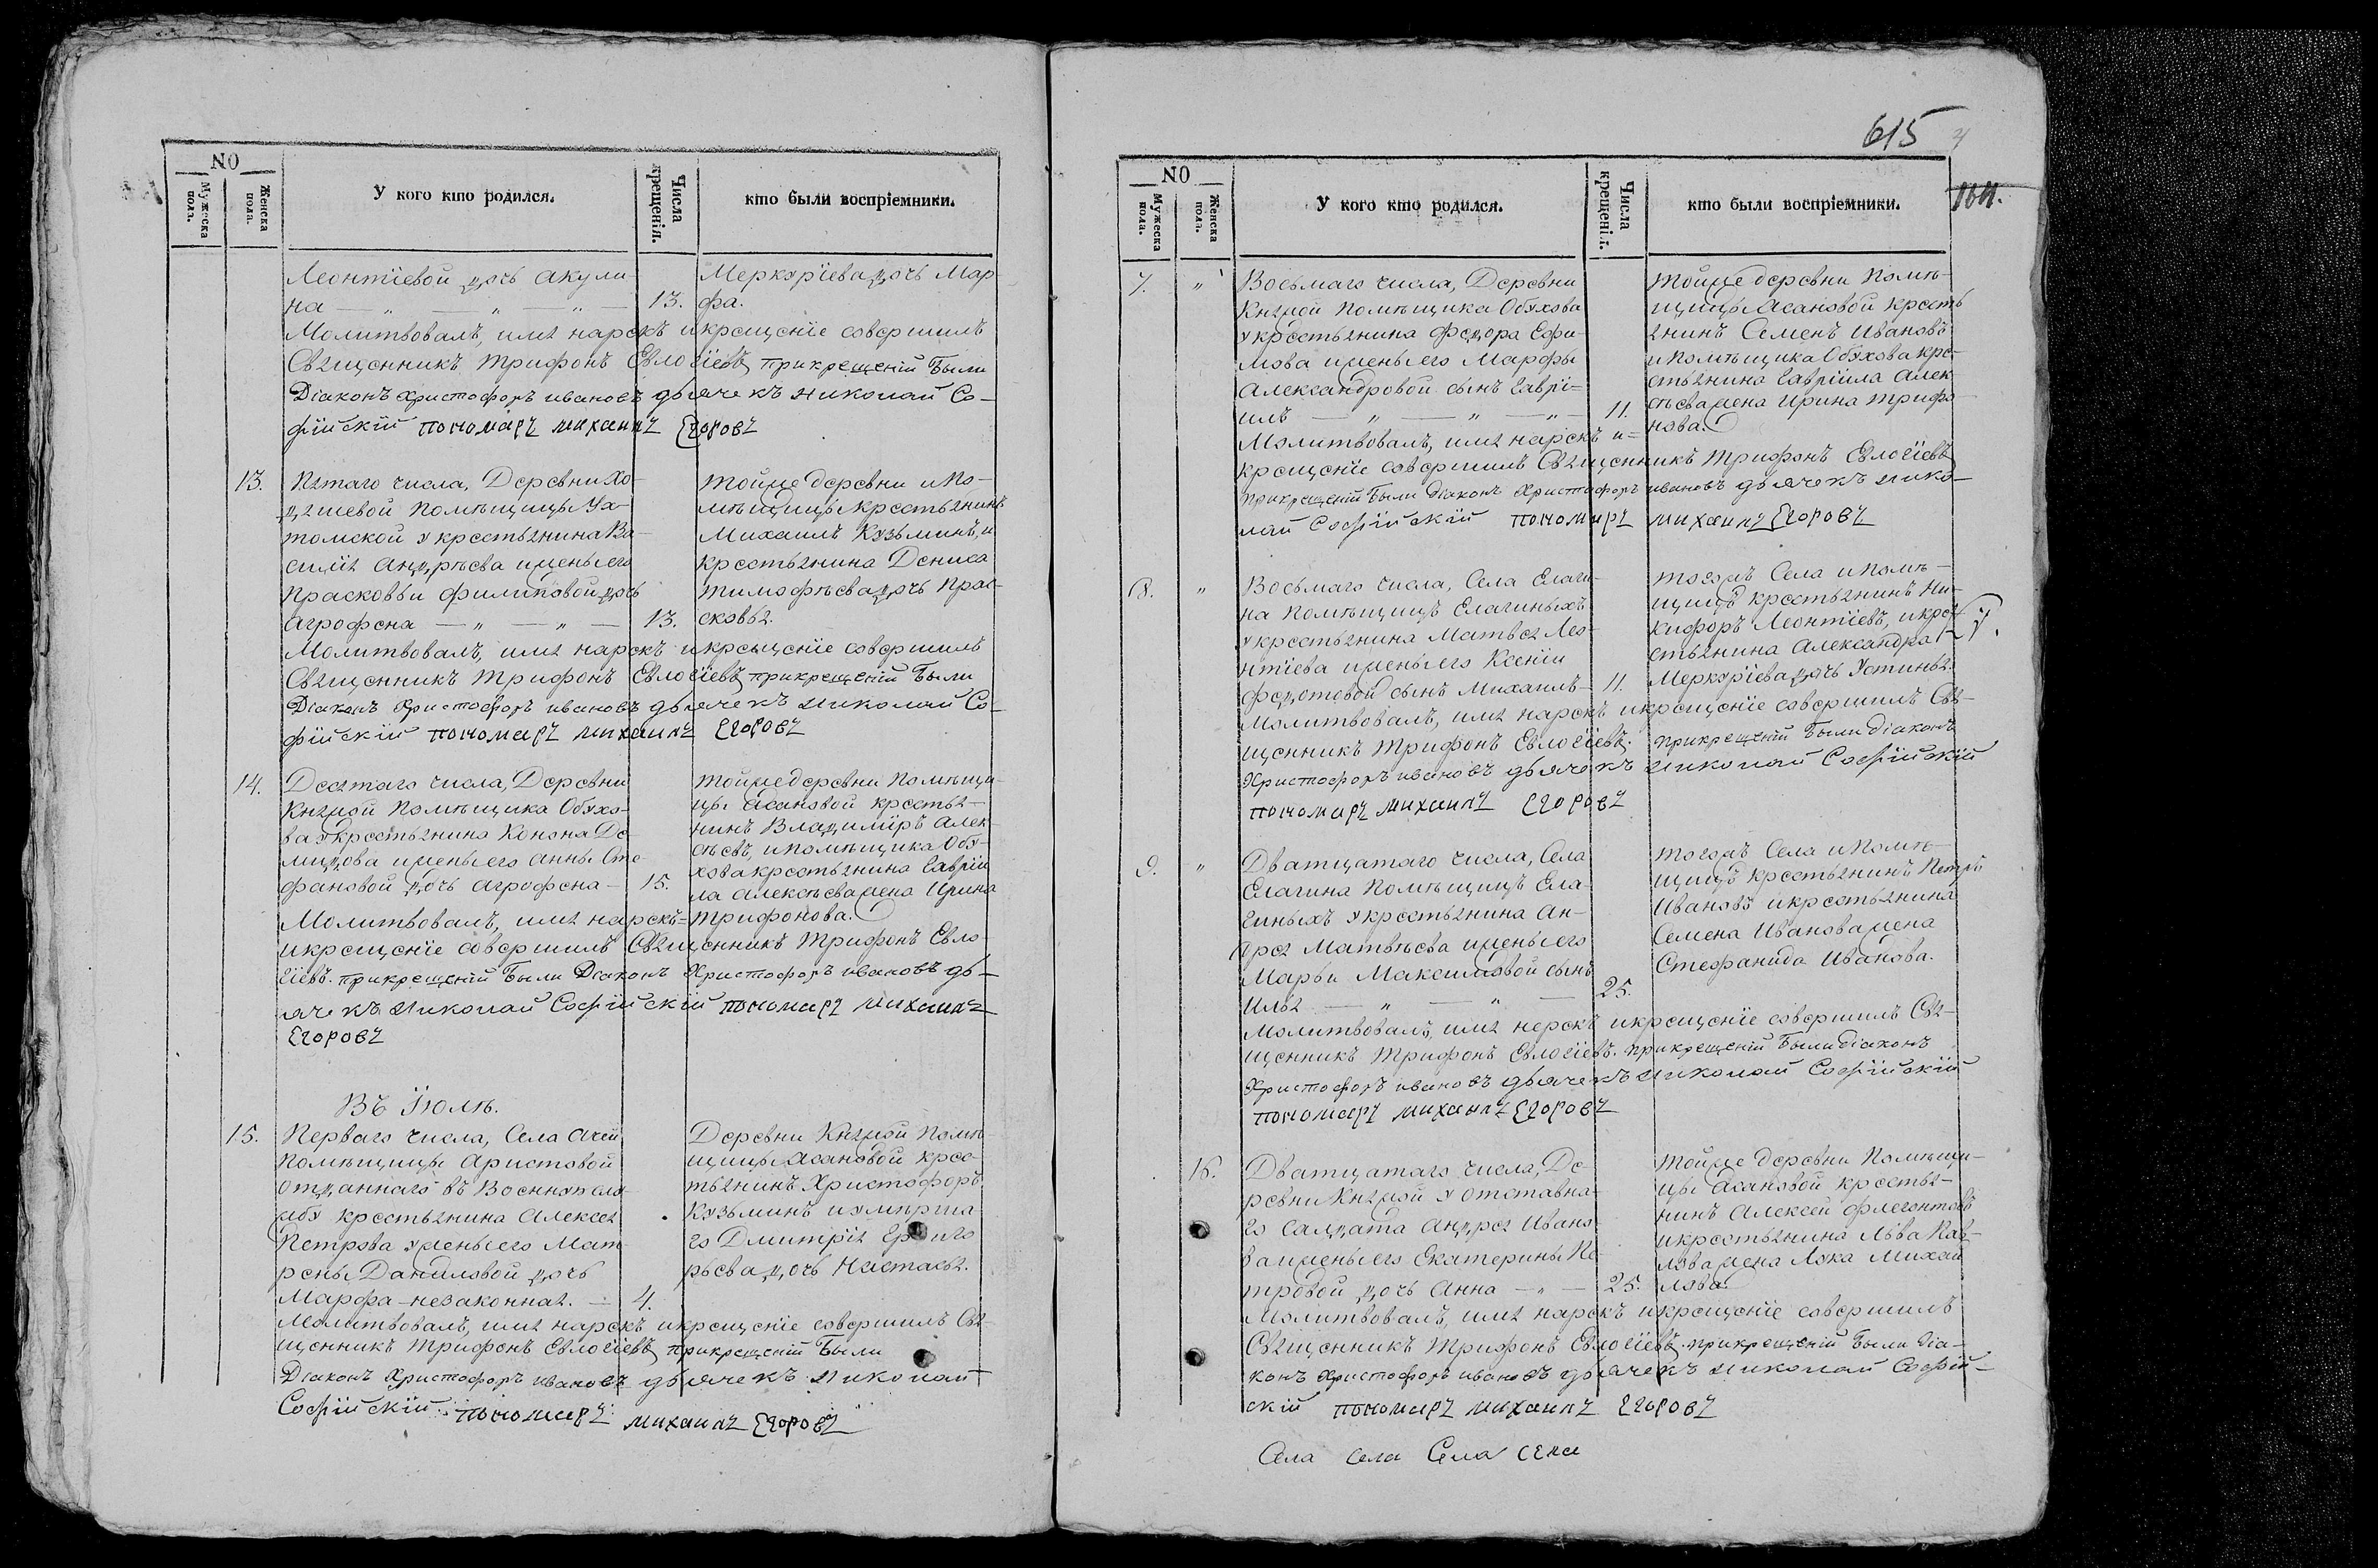 NO
Мужеска пола.
Женска пола.
У кого кто родился.
Числа крещенія.
кто были воспріемники.
Леонтіевой дочь Акули-
на — „ — „ — „ — 13.
Меркуріева дочь Мар
фа.
Молитвовалъ, имя нарекъ и крещеніе совершилъ
Священникъ Трифонъ Евлогіевъ при крещеніи были
Діаконъ Христофоръ Ивановъ дьячекъ Николай Со-
фійскій пономарь Михаилъ Егоровъ
13. Пятаго числа, Деревни Хо-
дяшевой Помѣщицы Ух-
томской у крестьянина Ва-
силія Андрѣева и жены его
Прасковьи Филиповой дочь
Агрофена — „ — „ — 13.
Тойже деревни и По-
мѣщицы крестьянинъ
Михаилъ Кузьминъ, и
крестьянина Дениса
Тимофѣева дочь Прас-
ковья.
Молитвовалъ, имя нарекъ и крещеніе совершилъ
Священникъ Трифонъ Евлогіевъ при крещеніи были
Діаконъ Христофоръ Ивановъ дьячекъ Николай Со-
фійскій пономарь Михаилъ Егоровъ
14. Десятаго числа, Деревни
Княжой Помѣщика Обухо-
ва у крестьянина Конона Де-
мидова и жены его Анны Сте-
фановой дочь Агрофена — 15.
Тойже деревни Помѣщи-
цы Асановой крестья-
нинъ Владимиръ Алек-
сѣевъ, и помѣщика Обу-
хова крестьянина Гавріи
ла Алексѣева жена Ирина
Трифонова.
Молитвовалъ, имя нарекъ=
и крещеніе совершилъ Священникъ Трифонъ Евло-
гіевъ. при крещеніи были Діаконъ Христофоръ Ивановъ дь-
ячекъ Николай Софійскій пономарь Михаилъ
Егоровъ
Въ Іюлѣ.
15. Перваго числа, Села Ачей
Помѣщицы Аристовой
отданнаго въ Военную слу
жбу крестьянина Алексея
Петрова у жены его Мат
рены Даниловой дочь
Марфа – незаконная. — 4.
Деревни Княжой Помѣ
щицы Асановой крес-
тьянинъ Христофоръ
Кузьминъ и умерша
го Дмитрія
дочь Настасья.
Молитвовалъ, имя нарекъ и крещеніе совершилъ Свя-
щенникъ Трифонъ Евлогіевъ при крещеніи были
Діаконъ Христофоръ Ивановъ дьячекъ Николай
Софійскій пономарь Михаилъ Егоровъ
615
NO
Мужеска пола.
Женска пола.
У кого кто родился.
Числа крещенія.
кто были воспріемники.
7. „ Восьмаго числа, Деревни
Княжой Помѣщика Обухова
у крестьянина Федора Ефи-
мова и жены его Марфы
Александровой сынъ Гаврі=
илъ — „ — „ — „ — 11.
Тойже деревни Помѣ-
щицы Асановой кресть
янинъ Семенъ Ивановъ
и помѣщика Обухова кре-
стьянина Гавріила Алек
сѣева жена Ирина Трифо-
нова.
Молитвовалъ, имя нарекъ и=
крещеніе совершилъ Священникъ Трифонъ Евлогіевъ
при крещеніи были Діаконъ Христофоръ Ивановъ дьячекъ Нико-
лай Софійскій пономарь Михаилъ Егоровъ
8. „ Восьмаго числа, Села Елаги-
на Помѣщицъ Елагиныхъ
у крестьянина Матвея Лео-
нтіева и жены его Ксеніи
Федотовой сынъ Михаилъ — 11.
Тогожъ Села и помѣ-
щицъ крестьянинъ Ни-
кифоръ Леонтіевъ, и кре-
стьянина Александра
Меркуріева дочь Устинья.
Молитвовалъ, имя нарекъ и крещеніе совершилъ Свя-
щенникъ Трифонъ Евлогіевъ. при крещеніи были Діаконъ
Христофоръ Ивановъ дьячекъ Николай Софійскій
пономарь Михаилъ Егоровъ
9. „ Дватцатаго числа, Села
Елагина Помѣщицъ Ела-
гиныхъ у крестьянина Ан-
дрея Матвѣева и жены его
Марьи Максимовой сынъ
Илья — „ — „ — 25.
Тогожъ Села и помѣ-
щицъ крестьянинъ Петръ
Ивановъ и крестьянина
Семена Иванова жена
Стефанида Иванова.
Молитвовалъ, имя нерекъ и крещеніе совершилъ Свя-
щенникъ Трифонъ Евлогіевъ. при крещеніи были Діаконъ
Христофоръ Ивановъ дьячекъ Николай Софійскій
пономарь Михаилъ Егоровъ
16. Дватцатаго числа, Де-
ревни Княжой у отставна-
го Салдата Андрея Ивано-
ва и жены его Екатерины Пе
тровой дочь Анна — „ — 25.
Тойже деревни Помѣщи-
цы Асановой крестья-
нинъ Алексей Флегонтовъ
и крестьянина Льва Пав-
лова жена Михай
лова.
Молитвовалъ, имя нарекъ и крещеніе совершилъ
Священникъ Трифонъ Евлогіевъ. при крещеніи были Діа-
конъ Христофоръ Ивановъ дьячекъ Николай Софій-
скій пономарь Михаилъ Егоровъ
Села Села Села села